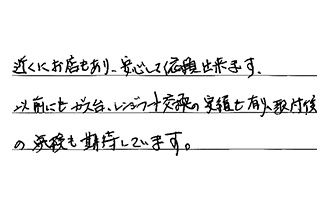 近くにお店もあり、安心して依頼出来ます。
以前にもガス台、レンジフード交換の実績も有り、取付後
の点検も期待しています。